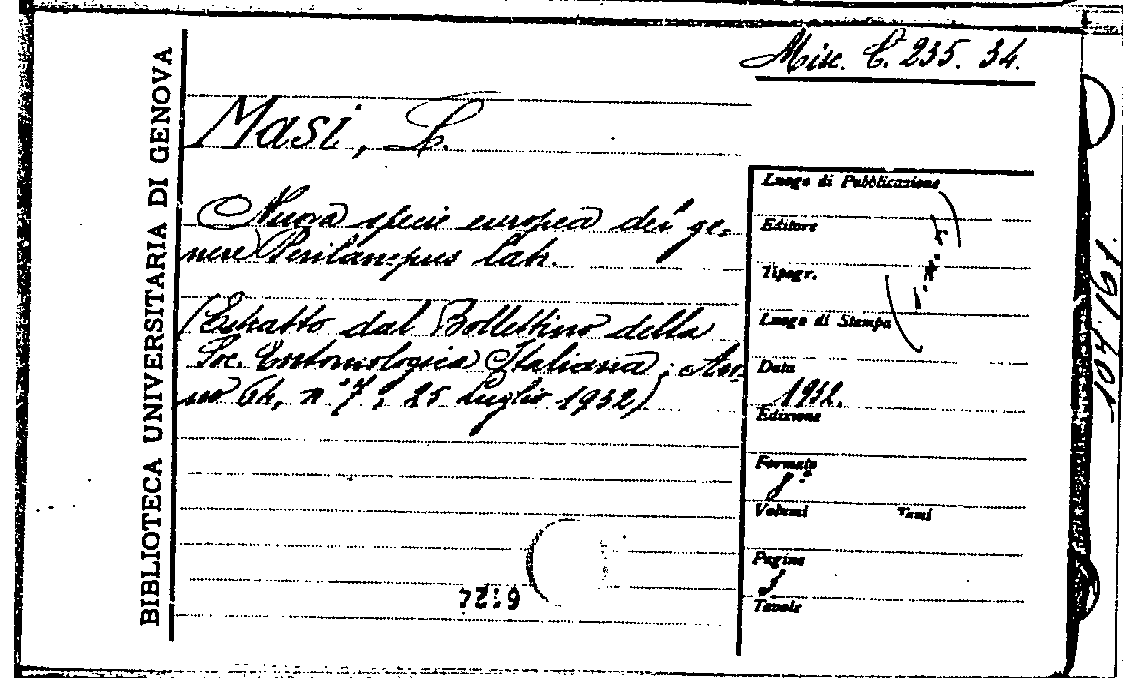 BIBLIOTECA UNIVERSITARIA DI GENOVA
Misc. C. 235. 34.
Masi, L.
Nuova specie europea del ge-
nere Perilampus Latr.
(Estratto dal Bollettino della
Soc. Entomologica Italiana; An-
no 64, n° 7, 25 Luglio 1932)
Luogo di Pubblicazione
Editore
Tipogr.
Luogo di Stampa
Data
1932.
Edizione
Formato
8°
Volumi Tomi
Pagine
Tavole